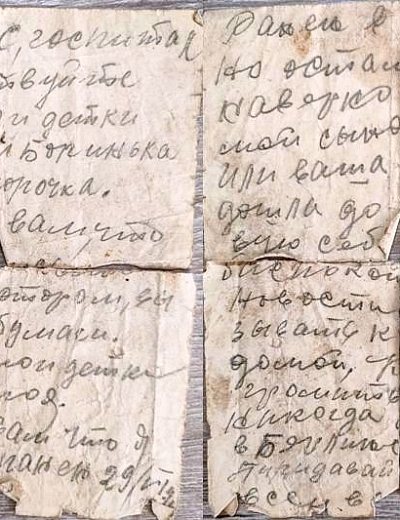 С, госпитал
твуйте
и детки
й Боринька
орочка.
вам, что
отором, вы
бумаги.
мои детки
ноя.
вам что я
ранен 29/VI
Ранен в
но остал
наверно
мой сыно
или ваша
дошла до
вую себ
беспокои
новости
зывать к
домой, 
громить
никогда
в Берлине
Ожидавай
всем. в